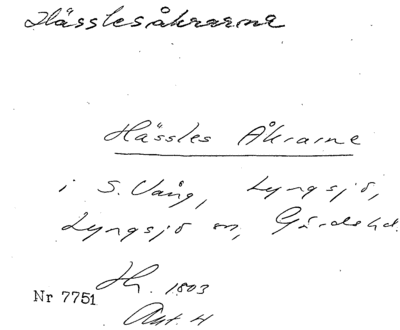 Hässlesåkrarne
Hässles Åkrarne
i S. Vång, Lyngsjö,
Lyngsjö sn, Gärds hd.
Nr 7751
Hr. 1803
Akt. 4